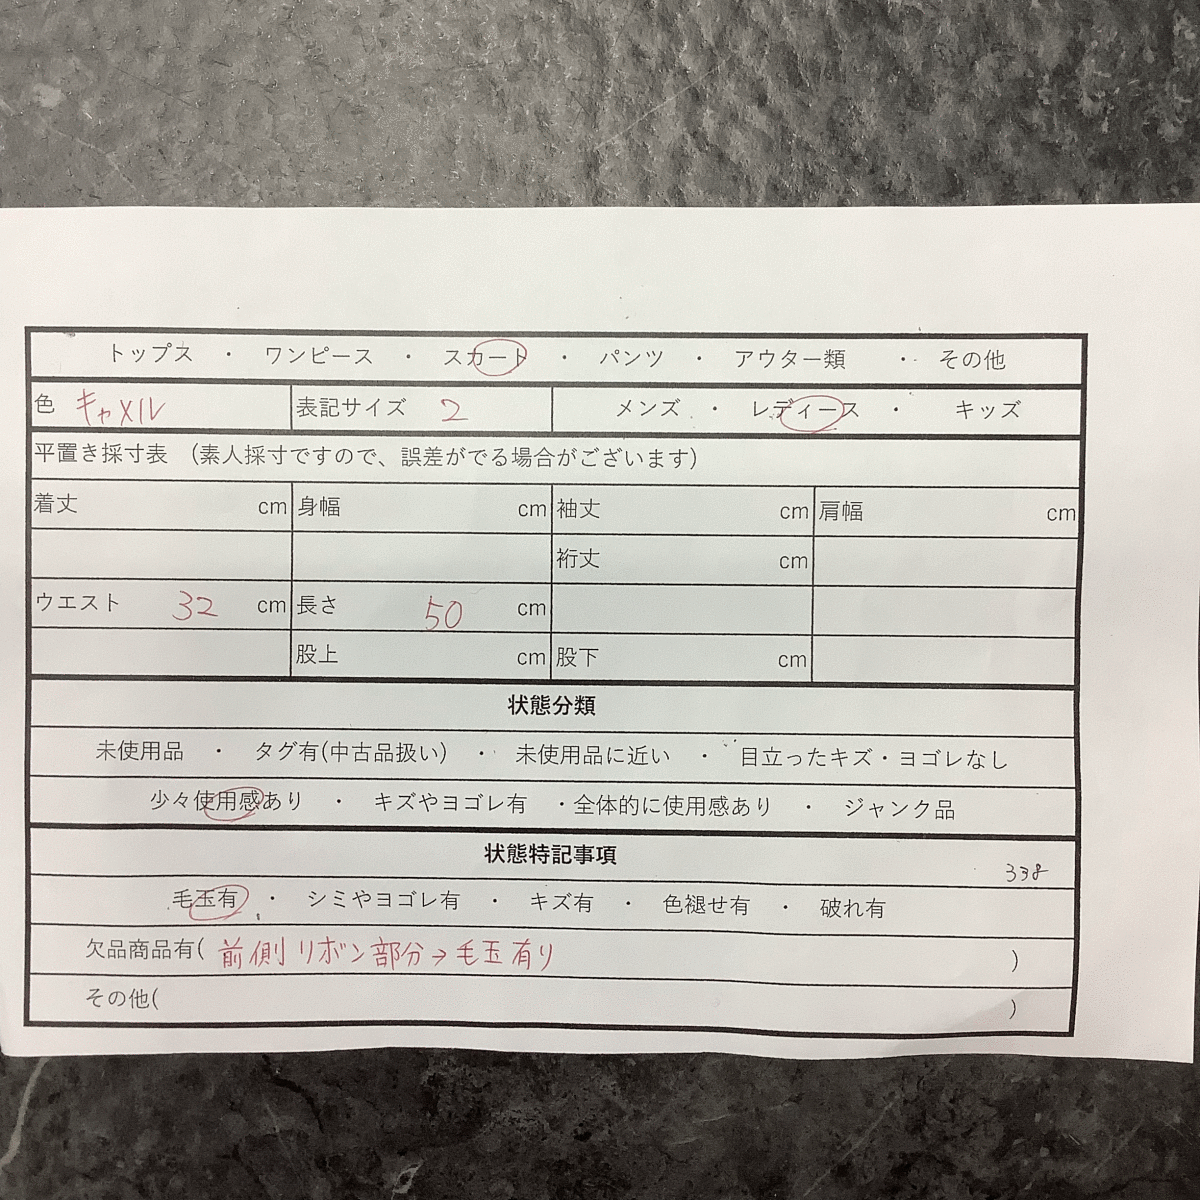 トップス ・ ワンピース ・ スカート ・ パンツ ・ アウター類 ・ その他
色 キャメル 表記サイズ 2 メンズ ・ レディース ・ キッズ
平置き採寸表 (素人採寸ですので、誤差がでる場合がございます)
着丈 cm 身幅 cm 袖丈 cm 肩幅 cm
裄丈 cm
ウエスト 32 cm 長さ 50 cm
股上 cm 股下 cm
状態分類
未使用品 ・ タグ有(中古品扱い) ・ 未使用品に近い ・ 目立ったキズ・ヨゴレなし
少々使用感あり ・ キズやヨゴレ有 ・全体的に使用感あり ・ ジャンク品
状態特記事項
338
毛玉有 ・ シミやヨゴレ有 ・ キズ有 ・ 色褪せ有 ・ 破れ有
欠品商品有( 前側リボン部分→毛玉有り )
その他( )